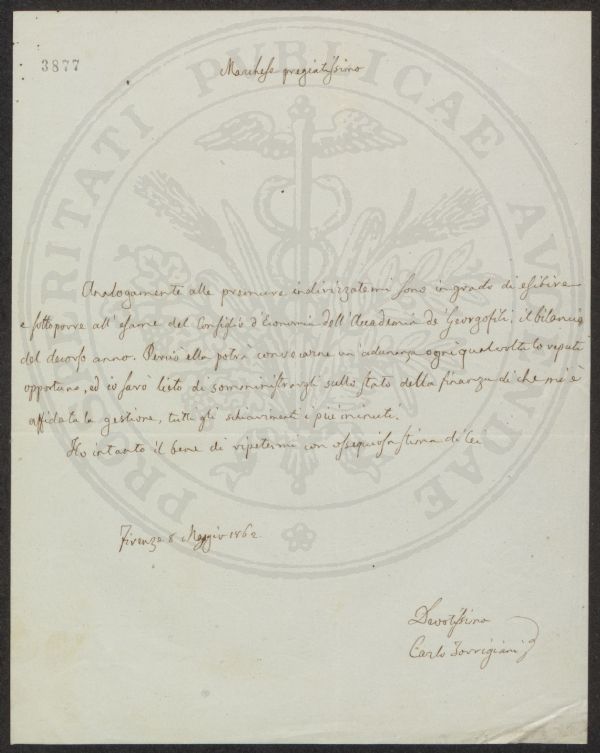 3877
Marchese pregiatissimo
PROSPERITATI PUBLICAE AUGENDAE
Analogamente alle premure indirizzatemi sono in grado di esibire
e sottoporre all'esame del Consiglio d'Economia dell'Accademia de' Georgofili, il bilancio
del decorso anno. Perciò ella potrà convocarne un'adunanza ogni qual volta lo reputi
opportuno, ed io sarò lieto di somministrargli sullo stato della finanza di che mi è
affidata la gestione, tutti gli schiarimenti i più minuti.
Ho intanto il bene di ripetermi con ossequiosa stima di Lei
Firenze 8 Maggio 1862
Devotissimo
Carlo Torrigiani